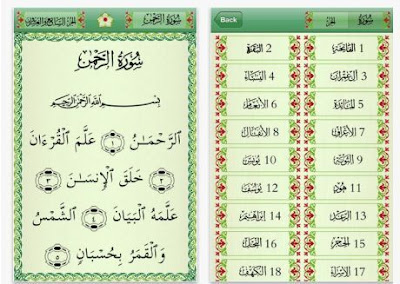 سورة الرحمن الجزء السابع والعشرون
سُورَةُ الرَّحْمٰن
بِسْمِ اللهِ الرَّحْمٰنِ الرَّحِيمِ
ٱلرَّحْمَـٰنُ ١ عَلَّمَ ٱلْقُرْءَانَ
٢ خَلَقَ ٱلْإِنسَـٰنَ ٣
عَلَّمَهُ ٱلْبَيَانَ ٤ ٱلشَّمْسُ
وَٱلْقَمَرُ بِحُسْبَانٍ ٥
Back
سورة الجزء
1 الفاتحة 2 البقرة
3 آل عمران 4 النساء
5 المائدة 6 الأنعام
7 الأعراف 8 الأنفال
9 التوبة 10 يونس
11 هود 12 يوسف
13 الرعد 14 إبراهيم
15 الحجر 16 النحل
17 الإسراء 18 الكهف